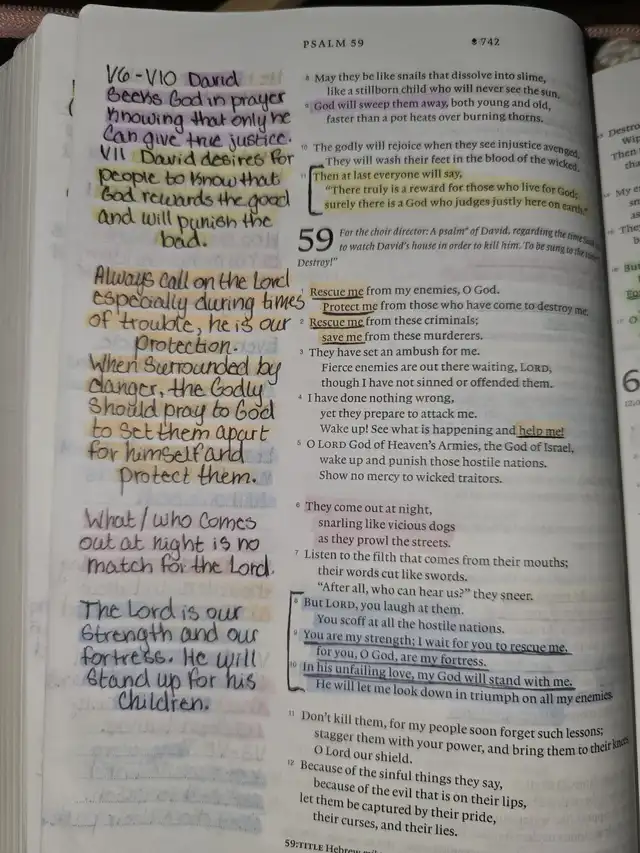 PSALM 59
742
V6-V10 David
Seeks God in prayer
Knowing that only he
Can give true justice.
V11 David desires for
people to know that
God rewards the good
and will punish the
bad.
Always call on the Lord
especially during times
of trouble, he is our
protection.
When Surrounded by
danger, the Godly
Should pray to God
to Set them apart
for himself and
protect them.
What/who comes
out at night is no
match for the Lord.
The Lord is our
Strength and our
fortress. He will
Stand up for his
Children.
8 May they be like snails that dissolve into slime,
like a stillborn child who will never see the sun.
9 God will sweep them away, both young and old,
faster than a pot heats over burning thorns.
10 The godly will rejoice when they see injustice avenged.
They will wash their feet in the blood of the wicked.
11 Then at last everyone will say,
"There truly is a reward for those who live for God;
surely there is a God who judges justly here on earth."
59 For the choir director: A psalm* of David, regarding the time Saul
to watch David's house in order to kill him. To be sung to the tune
Destroy!"
1 Rescue me from my enemies, O God.
Protect me from those who have come to destroy me.
2 Rescue me from these criminals;
save me from these murderers.
3 They have set an ambush for me.
Fierce enemies are out there waiting, LORD,
though I have not sinned or offended them.
4 I have done nothing wrong,
yet they prepare to attack me.
Wake up! See what is happening and help me!
5 O LORD God of Heaven's Armies, the God of Israel,
wake up and punish those hostile nations.
Show no mercy to wicked traitors.
6 They come out at night,
snarling like vicious dogs
as they prowl the streets.
7 Listen to the filth that comes from their mouths;
their words cut like swords.
"After all, who can hear us?" they sneer.
8 But LORD, you laugh at them.
You scoff at all the hostile nations.
9 You are my strength; I wait for you to rescue me,
for you, O God, are my fortress.
10 In his unfailing love, my God will stand with me.
He will let me look down in triumph on all my enemies.
11 Don't kill them, for my people soon forget such lessons;
stagger them with your power, and bring them to their knees,
O Lord our shield.
12 Because of the sinful things they say,
because of the evil that is on their lips,
let them be captured by their pride,
their curses, and their lies.
59:TITLE Hebrew
Destro
Wip
Then
tha
My e
They
But
6